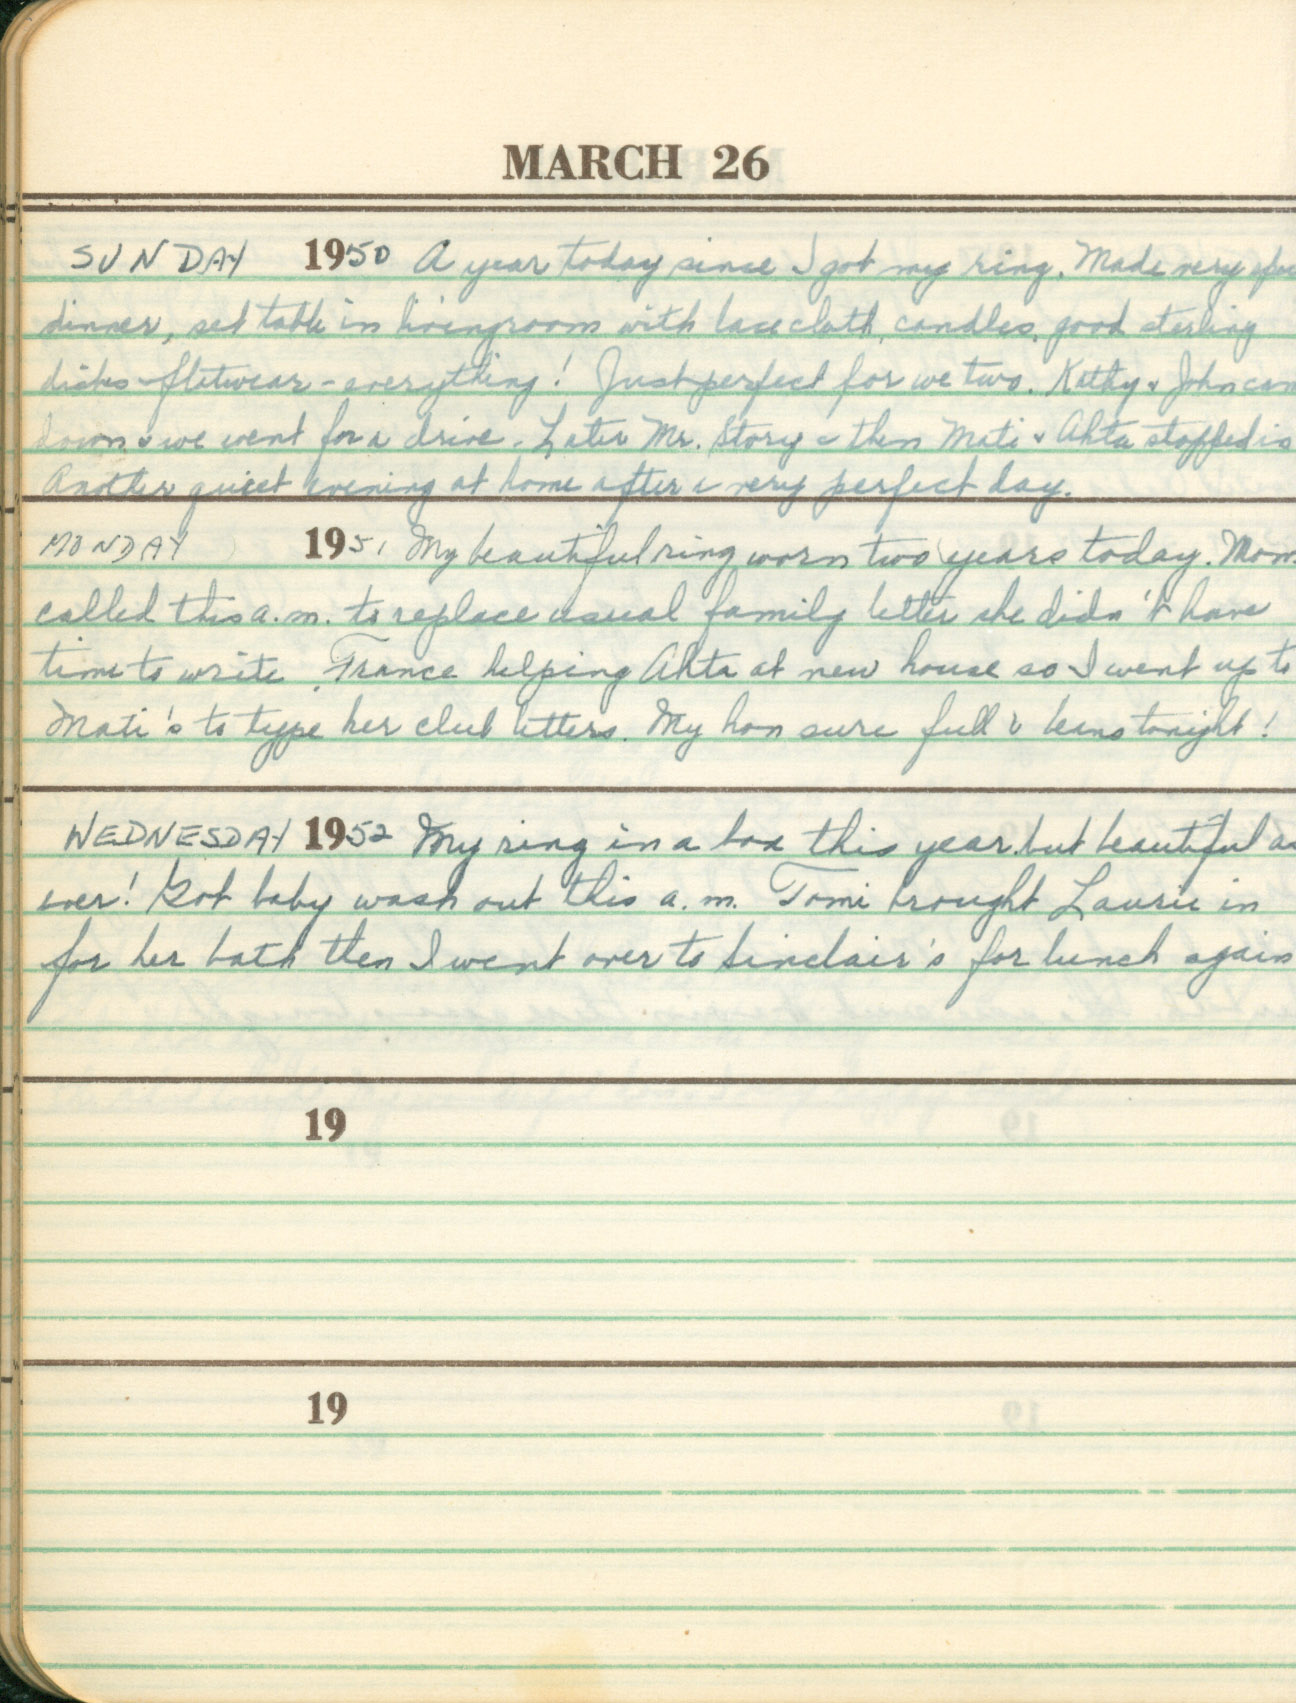 MARCH 26
SUNDAY 1950 A year today since I got my ring. Made very
dinner, set table in livingroom with lace cloth, candles, good sterling
dishes - flatwear - everything! Just perfect for we two. Kathy & John
down & we went for a drive. Later Mr. Story & then Mati & Ahta stopped in
Another quiet evening at home after a very perfect day.
MONDAY 1951 My beautiful ring worn two years today. Mom
called this a.m. to replace usual family letter she didn't have
time to write. France helping Ahta at new house so I went up to
Mati's to type her club letters. My hon sure full o beans tonight!
WEDNESDAY 1952 My ring in a box this year but beautiful as
ever! Got baby wash out this a.m. Tomi brought Laurie in
for her bath then I went over to Sinclair's for lunch again
19
19